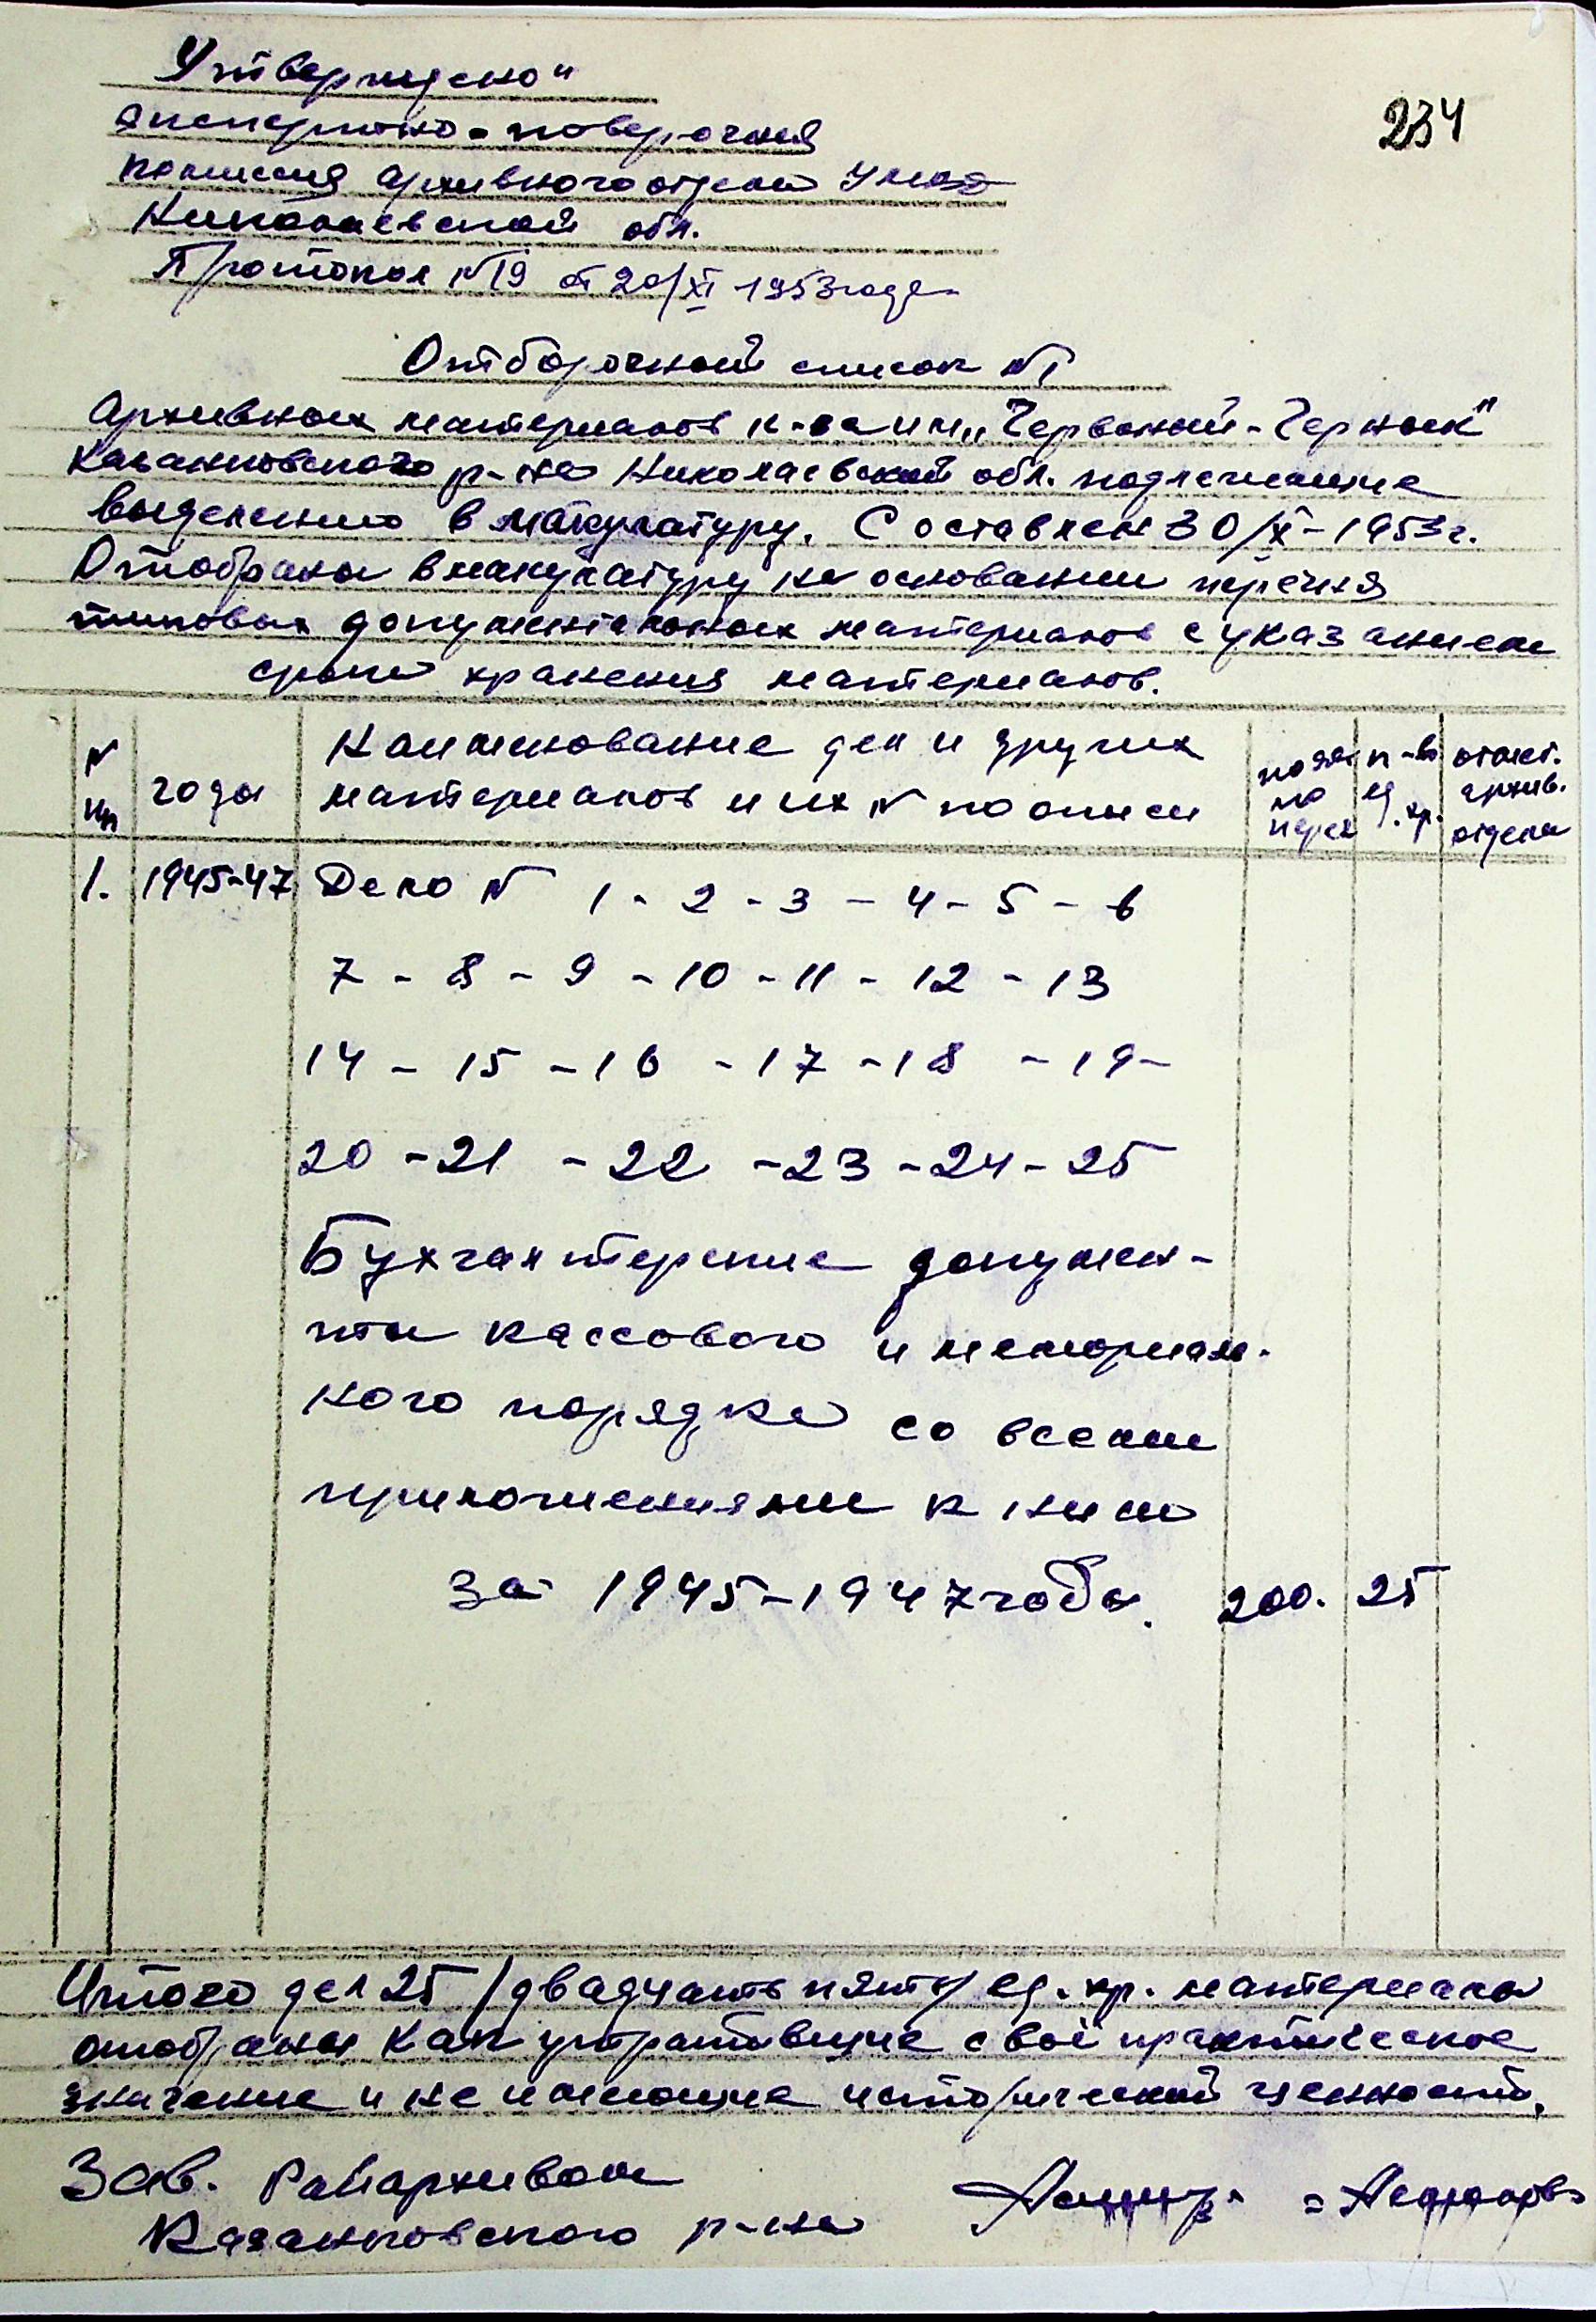 Утверждено"
234
экспертно-поверочная
комиссия архивного отдела УМВД
Николаевской обл.
Протокол №19 от 20/XI 1953 года
Отборочный список №1
Архивных материалов к-ва им „Червоный-Черных"
Казанковского р-на Николаевской обл. подлежащие
выделению в макулатуру. Составлен 30/X-1953г.
Отобраны в макулатуру на основании перечня
типовых документальных материалов с указанием
срока хранения материалов.
№ пп
годы
Наименование дел и других
материалов и их № по описи
№ стат. по переч
к-во ед. хр.
отмет. архив. отдела
1. 1945-47 Дело № 1 - 2 - 3 - 4 - 5 - 6
7 - 8 - 9 - 10 - 11 - 12 - 13
14 - 15 - 16 - 17 - 18 - 19 -
20 - 21 - 22 - 23 - 24 - 25
Бухгалтерские докумен-
ты кассового и мемориаль-
ного порядка со всеми
приложениями к ним
за 1945-1947 годы. 200. 25
Итого дел 25 /двадцать пять/ ед. хр. материалы
отобраны как утратившие своё практическое
значение и не имеющие исторической ценности.
Зав. Райархивом
Казанковского р-на